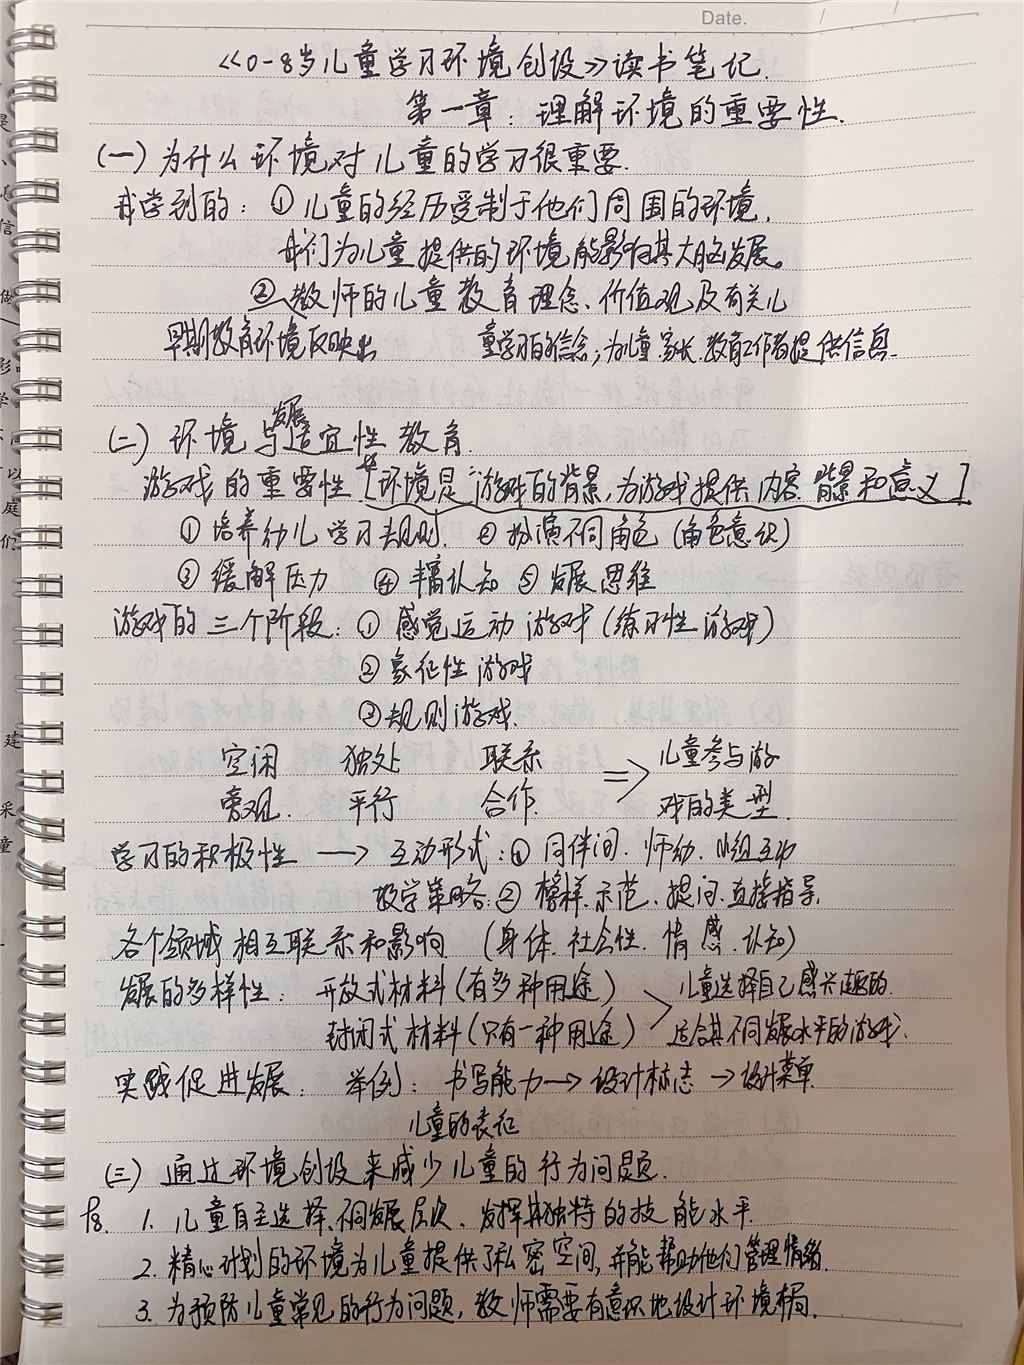 Date. / /
《0-8岁儿童学习环境创设》读书笔记.
第一章：理解环境的重要性.
(一) 为什么环境对儿童的学习很重要.
我学到的：① 儿童的经历受制于他们周围的环境.
我们为儿童提供的环境能影响其大脑发展。
② 教师的儿童教育理念、价值观及有关儿
早期教育环境反映出 童学习的信念，为儿童、家长、教育工作者提供信息.
发展
(二) 环境与适宜性教育.
游戏的重要性 *[环境是“游戏的背景，为游戏提供内容、背景和意义]
① 培养幼儿学习规则. ② 扮演不同角色 (角色意识)
③ 缓解压力 ④ 丰富认知 ⑤ 发展思维
游戏的三个阶段：① 感觉运动游戏 (练习性游戏)
② 象征性游戏
③ 规则游戏.
空闲 独处 联系 => 儿童参与游
旁观. 平行 合作. 戏的类型.
学习的积极性 → 互动形式：① 同伴间、师幼、小组互动
教学策略：② 榜样、示范、提问、直接指导.
各个领域相互联系和影响 (身体.社会性.情感.认知)
发展的多样性：开放式材料 (有多种用途) > 儿童选择自己感兴趣的.
封闭式材料 (只有一种用途) 适合其不同发展水平的游戏.
实践促进发展：举例：书写能力 → 设计标志 → 设计菜单.
儿童的表征
(三) 通过环境创设来减少儿童的行为问题.
P8. 1. 儿童自主选择、不同发展层次、发挥其独特的技能水平.
2. 精心计划的环境为儿童提供了私密空间，并能帮助他们管理情绪.
3. 为预防儿童常见的行为问题，教师需要有意识地设计环境布局.